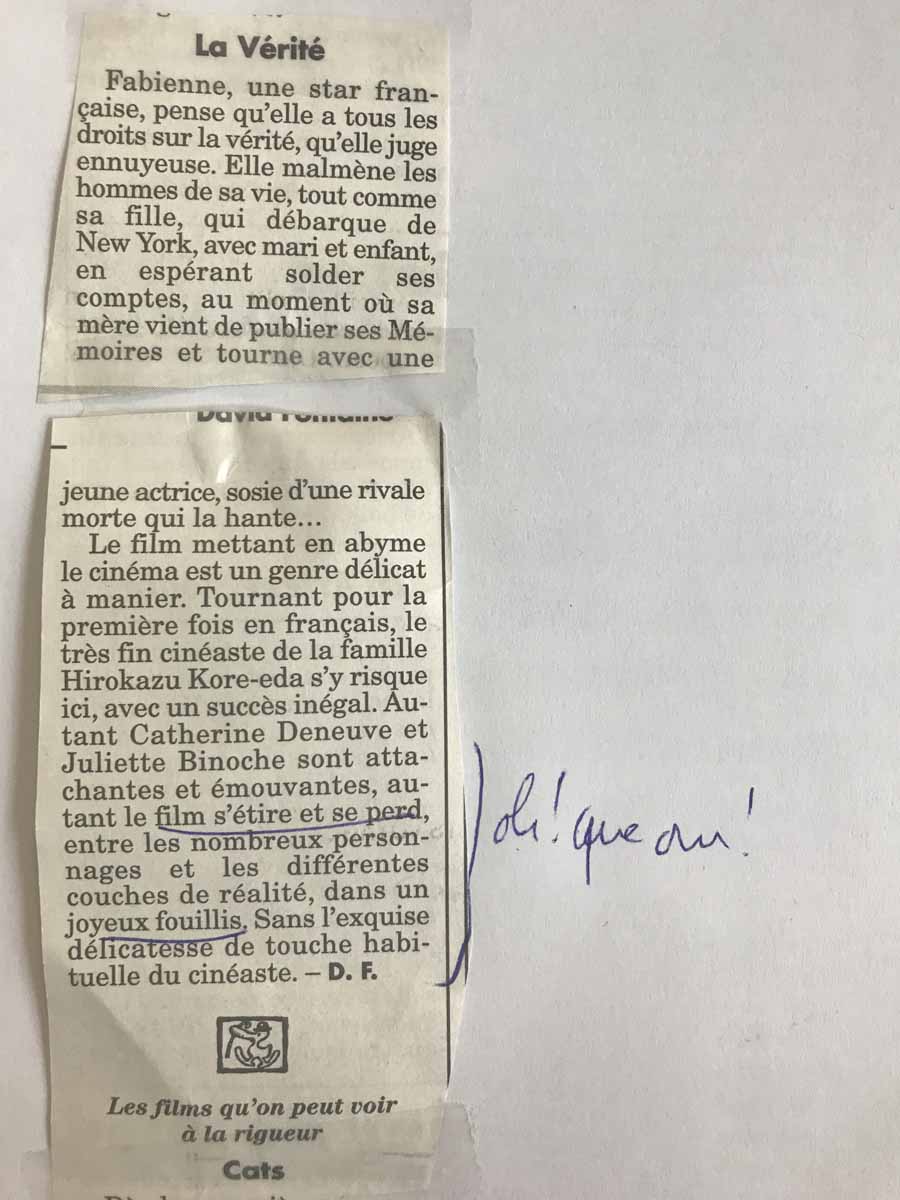 La Vérité
Fabienne, une star fran-
çaise, pense qu'elle a tous les
droits sur la vérité, qu'elle juge
ennuyeuse. Elle malmène les
hommes de sa vie, tout comme
sa fille, qui débarque de
New York, avec mari et enfant,
en espérant solder ses
comptes, au moment où sa
mère vient de publier ses Mé-
moires et tourne avec une
David Fontaine
jeune actrice, sosie d'une rivale
morte qui la hante...
Le film mettant en abyme
le cinéma est un genre délicat
à manier. Tournant pour la
première fois en français, le
très fin cinéaste de la famille
Hirokazu Kore-eda s'y risque
ici, avec un succès inégal. Au-
tant Catherine Deneuve et
Juliette Binoche sont atta-
chantes et émouvantes, au-
tant le film s'étire et se perd,
entre les nombreux person-
nages et les différentes
couches de réalité, dans un
joyeux fouillis. Sans l'exquise
délicatesse de touche habi-
tuelle du cinéaste. – D. F.
oh! que oui!
Les films qu'on peut voir
à la rigueur
Cats